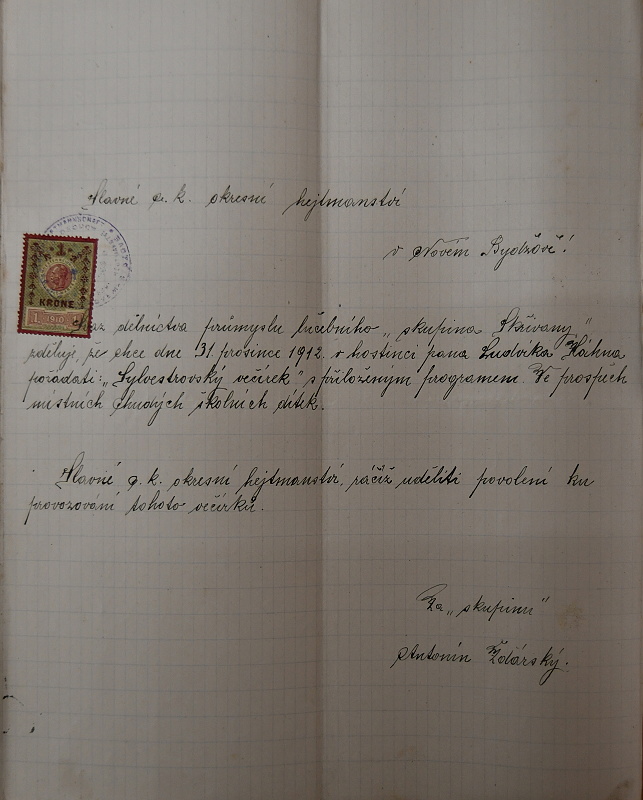 Slavné c. k. okresní hejtmanství
v Novém Bydžově!
1
KRONE
1 1910
Svaz dělnictva průmyslu lučebního „skupina Skřivany"
zděluje, že chce dne 31. prosince 1912. v hostinci pana Ludvíka Háhna
pořádati: „Sylvestrovský večírek" s přiloženým programem. Ve prospěch
místních chudých školních dítek.
Slavné c. k. okresní hejtmanství, račiž uděliti povolení ku
provozování tohoto večírku.
Za „skupinu"
Antonín Žďárský.